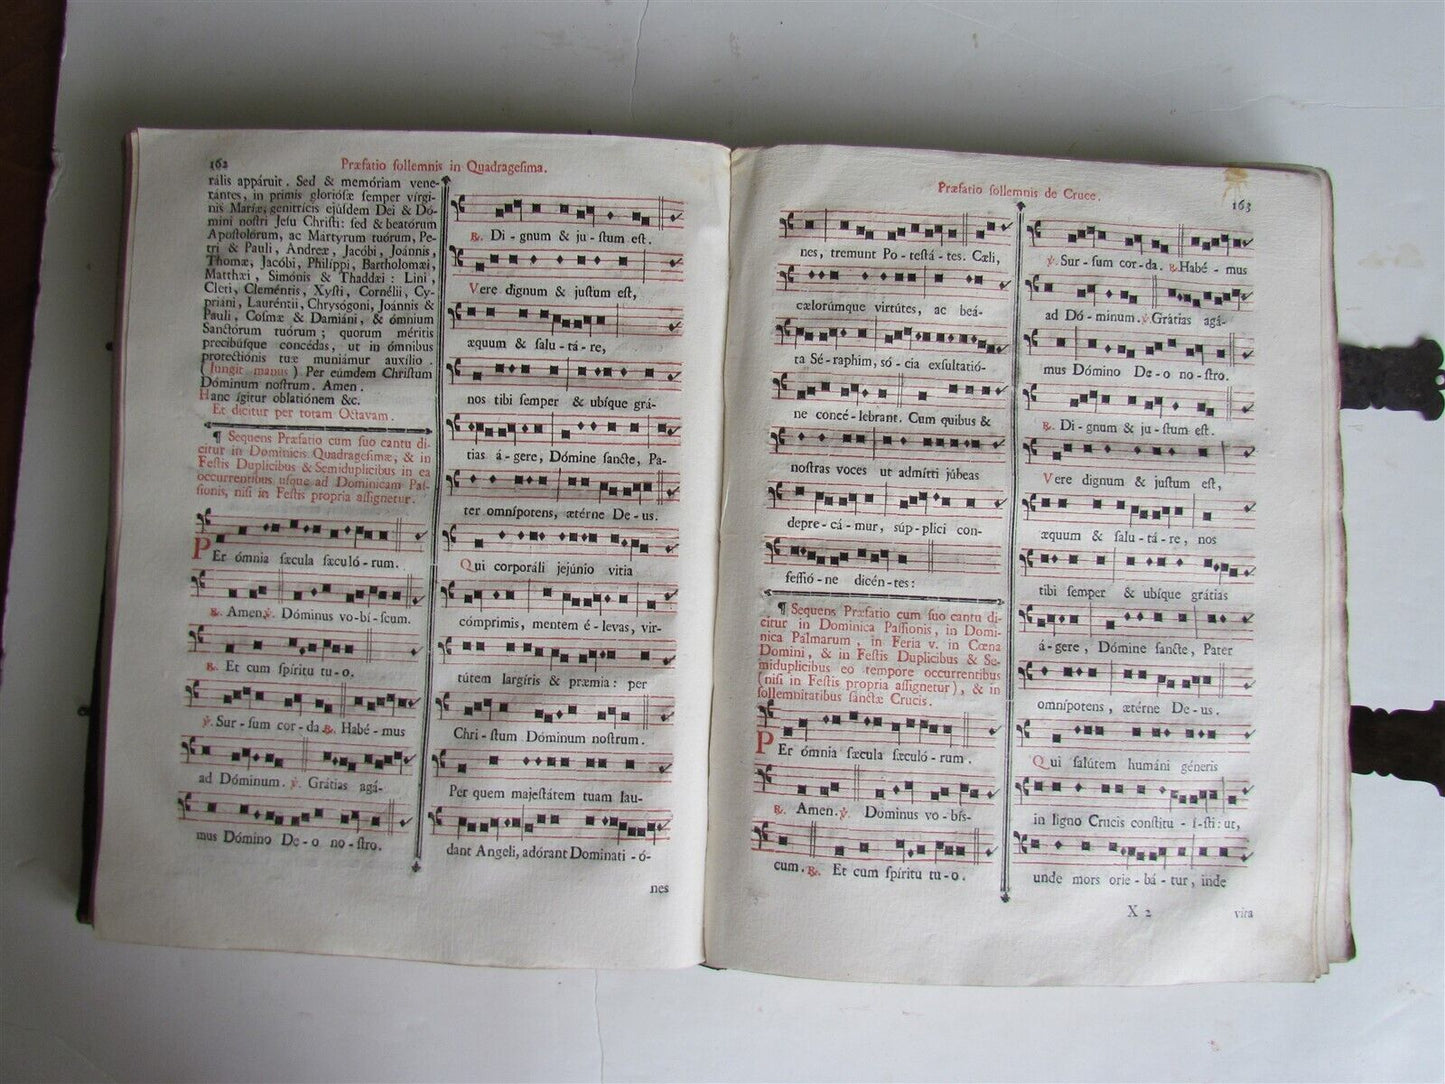 162
Præfatio ſollemnis in Quadrageſima.
rális appáruit. Sed & memóriam vene-
rántes, in primis glorióſæ ſemper vírgi-
nis Maríæ, genitrícis ejúſdem Dei & Dó-
mini noſtri Jeſu Chriſti: ſed & beatórum
Apoſtolórum, ac Mártyrum tuórum, Pe-
tri & Pauli, Andréæ, Jacóbi, Joánnis,
Thomæ, Jacóbi, Philíppi, Bartholomæi,
Matthæi, Simónis & Thaddæi: Lini,
Cleti, Cleméntis, Xyſti, Cornélii, Cy-
priáni, Lauréntii, Chryſógoni, Joánnis &
Pauli, Coſmæ & Damiáni, & ómnium
Sanctórum tuórum; quorum méritis
precibúſque concédas, ut in ómnibus
protectiónis tuæ muniámur auxílio.
(Jungit manus) Per eúmdem Chriſtum
Dóminum noſtrum. Amen.
Hanc ígitur oblatiónem &c.
Et dicitur per totam Octavam.
¶ Sequens Præfatio cum ſuo cantu di-
citur in Dominicis Quadrageſimæ, & in
Feſtis Duplicibus & Semiduplicibus in ea
occurrentibus uſque ad Dominicam Paſ-
ſionis, niſi in Feſtis propria aſſignetur.
PEr ómnia ſæcula ſæculó-rum.
℟. Amen. ℣. Dóminus vo-bí-ſcum.
℟. Et cum ſpíritu tu-o.
℣. Sur-ſum cor-da. ℟. Habé-mus
ad Dóminum. ℣. Grátias agá-
mus Dómino De-o no-ſtro.
℟. Di-gnum & ju-ſtum eſt.
Vere dignum & juſtum eſt,
æquum & ſalu-tá-re,
nos tibi ſemper & ubíque grá-
tias á-gere, Dómine ſancte, Pa-
ter omnípotens, ætérne De-us.
Qui corporáli jejúnio vitia
cómprimis, mentem é-levas, vir-
tútem largíris & præmia: per
Chri-ſtum Dóminum noſtrum.
Per quem majeſtátem tuam lau-
dant Angeli, adórant Dominati-ó-
nes
Præfatio ſollemnis de Cruce.
163
nes, tremunt Po-teſtá-tes. Cæli,
cælorúmque virtútes, ac beá-
ta Sé-raphim, só-cia exſultatió-
ne concé-lebrant. Cum quibus &
noſtras voces ut admítti júbeas
depre-cá-mur, súp-plici con-
feſſió-ne dicén-tes:
¶ Sequens Præfatio cum ſuo cantu di-
citur in Dominica Paſſionis, in Domi-
nica Palmarum, in Feria v. in Cœna
Domini, & in Feſtis Duplicibus & Se-
miduplicibus eo tempore occurrentibus
(niſi in Feſtis propria aſſignetur), & in
ſollemnitatibus ſanctæ Crucis.
PEr ómnia ſæcula ſæculó-rum.
℟. Amen. ℣. Dóminus vo-bíſ-
cum. ℟. Et cum ſpíritu tu-o.
℣. Sur-ſum cor-da. ℟. Habé-mus
ad Dó-minum. ℣. Grátias agá-
mus Dómino De-o no-ſtro.
℟. Di-gnum & ju-ſtum eſt.
Vere dignum & juſtum eſt,
æquum & ſalu-tá-re, nos
tibi ſemper & ubíque grátias
á-gere, Dómine ſancte, Pater
omnípotens, ætérne De-us.
Qui ſalútem humáni géneris
in ligno Crucis conſtitu-í-ſti: ut,
unde mors orie-bá-tur, inde
X 2
vita